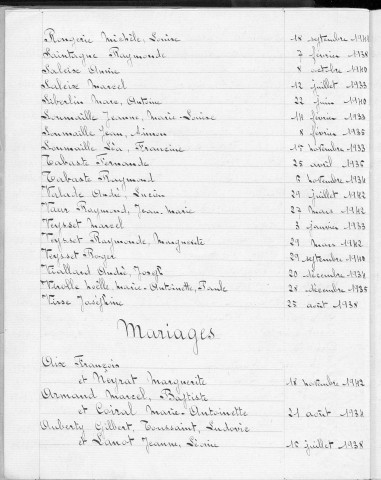 Rongerie Michèle, Louise 18 septembre 1942
Saintagne Raymonde 7 février 1938
Saleix Annie 8 octobre 1940
Saleix Marcel 12 juillet 1933
Siberlin Marc, Antoine 22 juin 1940
Soumaille Jeanne, Marie-Louise 14 février 1933
Soumaille Jean, Simon 8 février 1935
Soumaille Léa, Francine 15 novembre 1933
Tabaste Fernande 25 avril 1935
Tabaste Raymond 5 novembre 1934
Valade André, Lucien 29 juillet 1942
Vaur Raymond, Jean, Marie 27 mars 1942
Veysset Marcel 3 janvier 1933
Veysset Raymonde, Marguerite 29 mars 1942
Veysset Roger 29 septembre 1940
Viallard André, Joseph 20 décembre 1934
Noëlle, Marie-Antoinette, Paule 28 décembre 1935
Visse Joséphine 25 août 1938
Mariages
Aix François
et Neyrat Marguerite 18 novembre 1942
Armand Marcel, Baptiste
et Coiral Marie-Antoinette 21 août 1934
Auberty Gilbert, Toussaint, Ludovic
et Lanot Jeanne, Léonie 15 juillet 1938